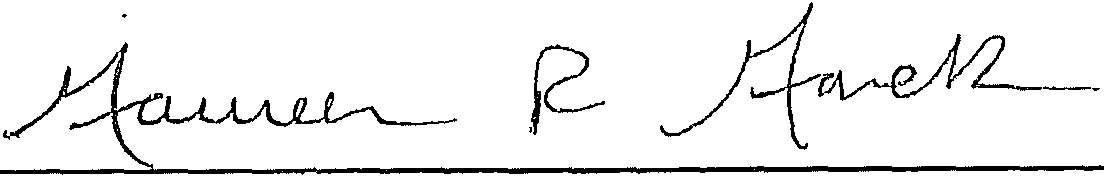 Maureen R Marek